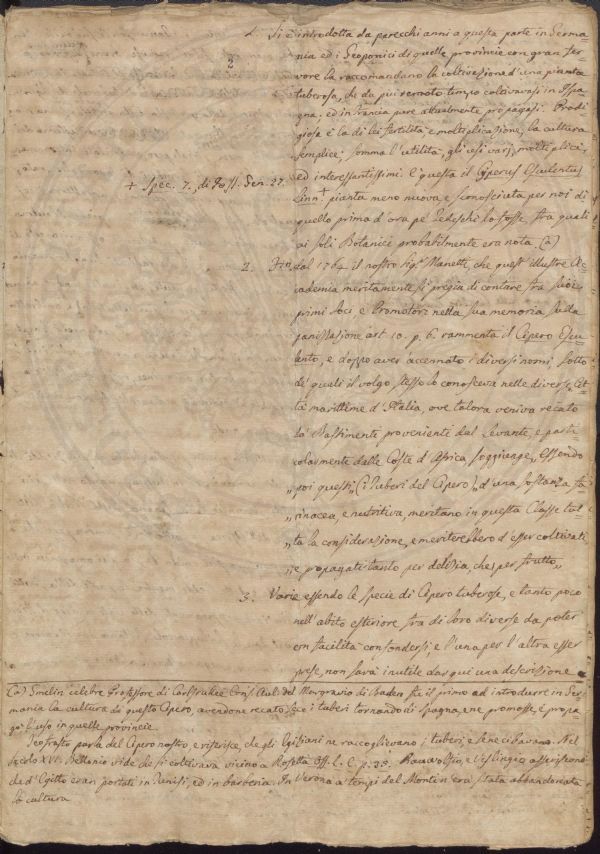 1. Si è introdotta da parecchi anni a questa parte in Germa-
nia ed i Geoponici di quelle provincie con gran fer-
vore la raccomandano la coltivazione d'una pianta
tuberosa, che da più remoto tempo coltivavasi in Ispa-
gna, ed in Francia pure attualmente propagasi. Prodi-
giosa è la di lei fertilità e moltiplicazione, la cultura
semplice; somma l'utilità, gli usi varj, moltiplici,
ed interessantissimi. È questa il Cyperus Esculentus
+ Spec. 7. di Gen. 27.
Linn.+ pianta meno nuova, e sconosciuta per noi di
quello prima d'ora pe' Tedeschi lo fosse, tra quali
ai soli Botanici probabilmente era nota. (a)
2. Fin dal 1764 il nostro Sig.r Manetti, che quest'illustre Ac-
cademia meritamente si pregia di contare tra suoi
primi Soci, e Promotori nella sua memoria sulla
panizzazione art. 10. p. 6. rammenta il Cipero Escu-
lento, e doppo aver accennato i diversi nomi, sotto
de' quali il volgo stesso lo conosceva nelle diverse Cit-
tà marittime d'Italia, ove talora veniva recato
da' Bastimenti provenienti dal Levante, e parti-
colarmente dalle Coste d'Africa soggiunge „ Essendo
„ poi questi „ (i Tuberi del Cipero) „ d'una sostanza fa-
„ rinacea, e nutritiva, meritano in questa Classe tut-
„ ta la considerazione, e meriterebbero d'esser coltivati
„ e propagati tanto per delizia, che per frutto „
3. Varie essendo le specie di Cipero tuberose, e tanto poco
nell'abito esteriore tra di loro diverse da poter
con facilità confondersi, e l'una per l'altra esser
prese, non sarà inutile dar qui una descrizione
(a) Gmelin celebre Professore di Carlsruhee Cons. Aul. del Margravio di Baaden fù il primo ad introdurre in Ger-
mania la cultura di questo Cipero, avendone recato seco i tuberi tornando di Spagna, e ne promosse, e propa-
gò l'uso in quelle provincie.
Teofrasto parla del Cipero nostro, e riferisce, che gli Egiziani ne raccoglievano i tuberi, e se ne cibavano. Nel
secolo XVI. Bellonio vide che si coltivava vicino a Rosetta Oss. L. C. p. 35. Rauwolfio, e Veslingio asseriscono
da d'Egitto eran portati in Tunisi, ed in Barberia. In Verona a' tempi del Montin era stata abbandonata
la cultura